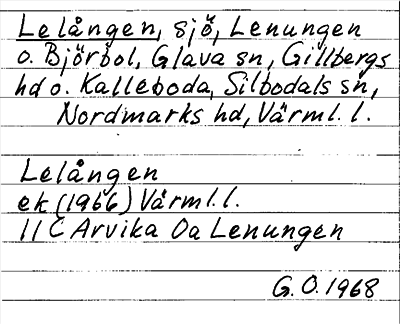 Lelången, sjö, Lenungen
o. Björbol, Glava sn, Gillbergs
hd o. Kalleboda, Silbodals sn,
Nordmarks hd, Värml. l.
Lelången
ek (1966) Värml. l.
11 C Arvika Oa Lenungen
G. O. 1968